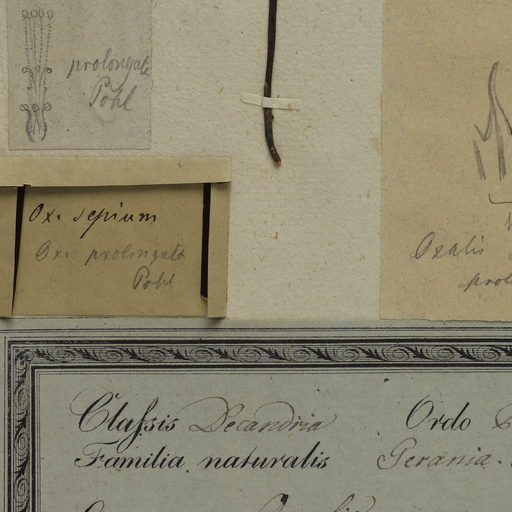 prolongata
Pohl
Ox. sepium
Ox. prolongata
Pohl
Oxalis
prol
Claſsis Decandria Ordo
Familia naturalis Gerania.